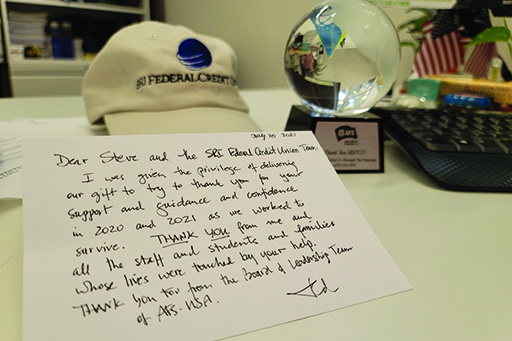 SRI FEDERAL CREDIT UNION
July 20 2021
Dear Steve and the SRI Federal Credit Union Team,
I was given the privilege of delivering
our gift to try to thank you for your
support and guidance and confidence
in 2020 and 2021 as we worked to
survive. THANK YOU from me and
all the staff and students and families
whose lives were touched by your help.
THANK you too from the Board & Leadership Team
of AFS-USA.
AFS